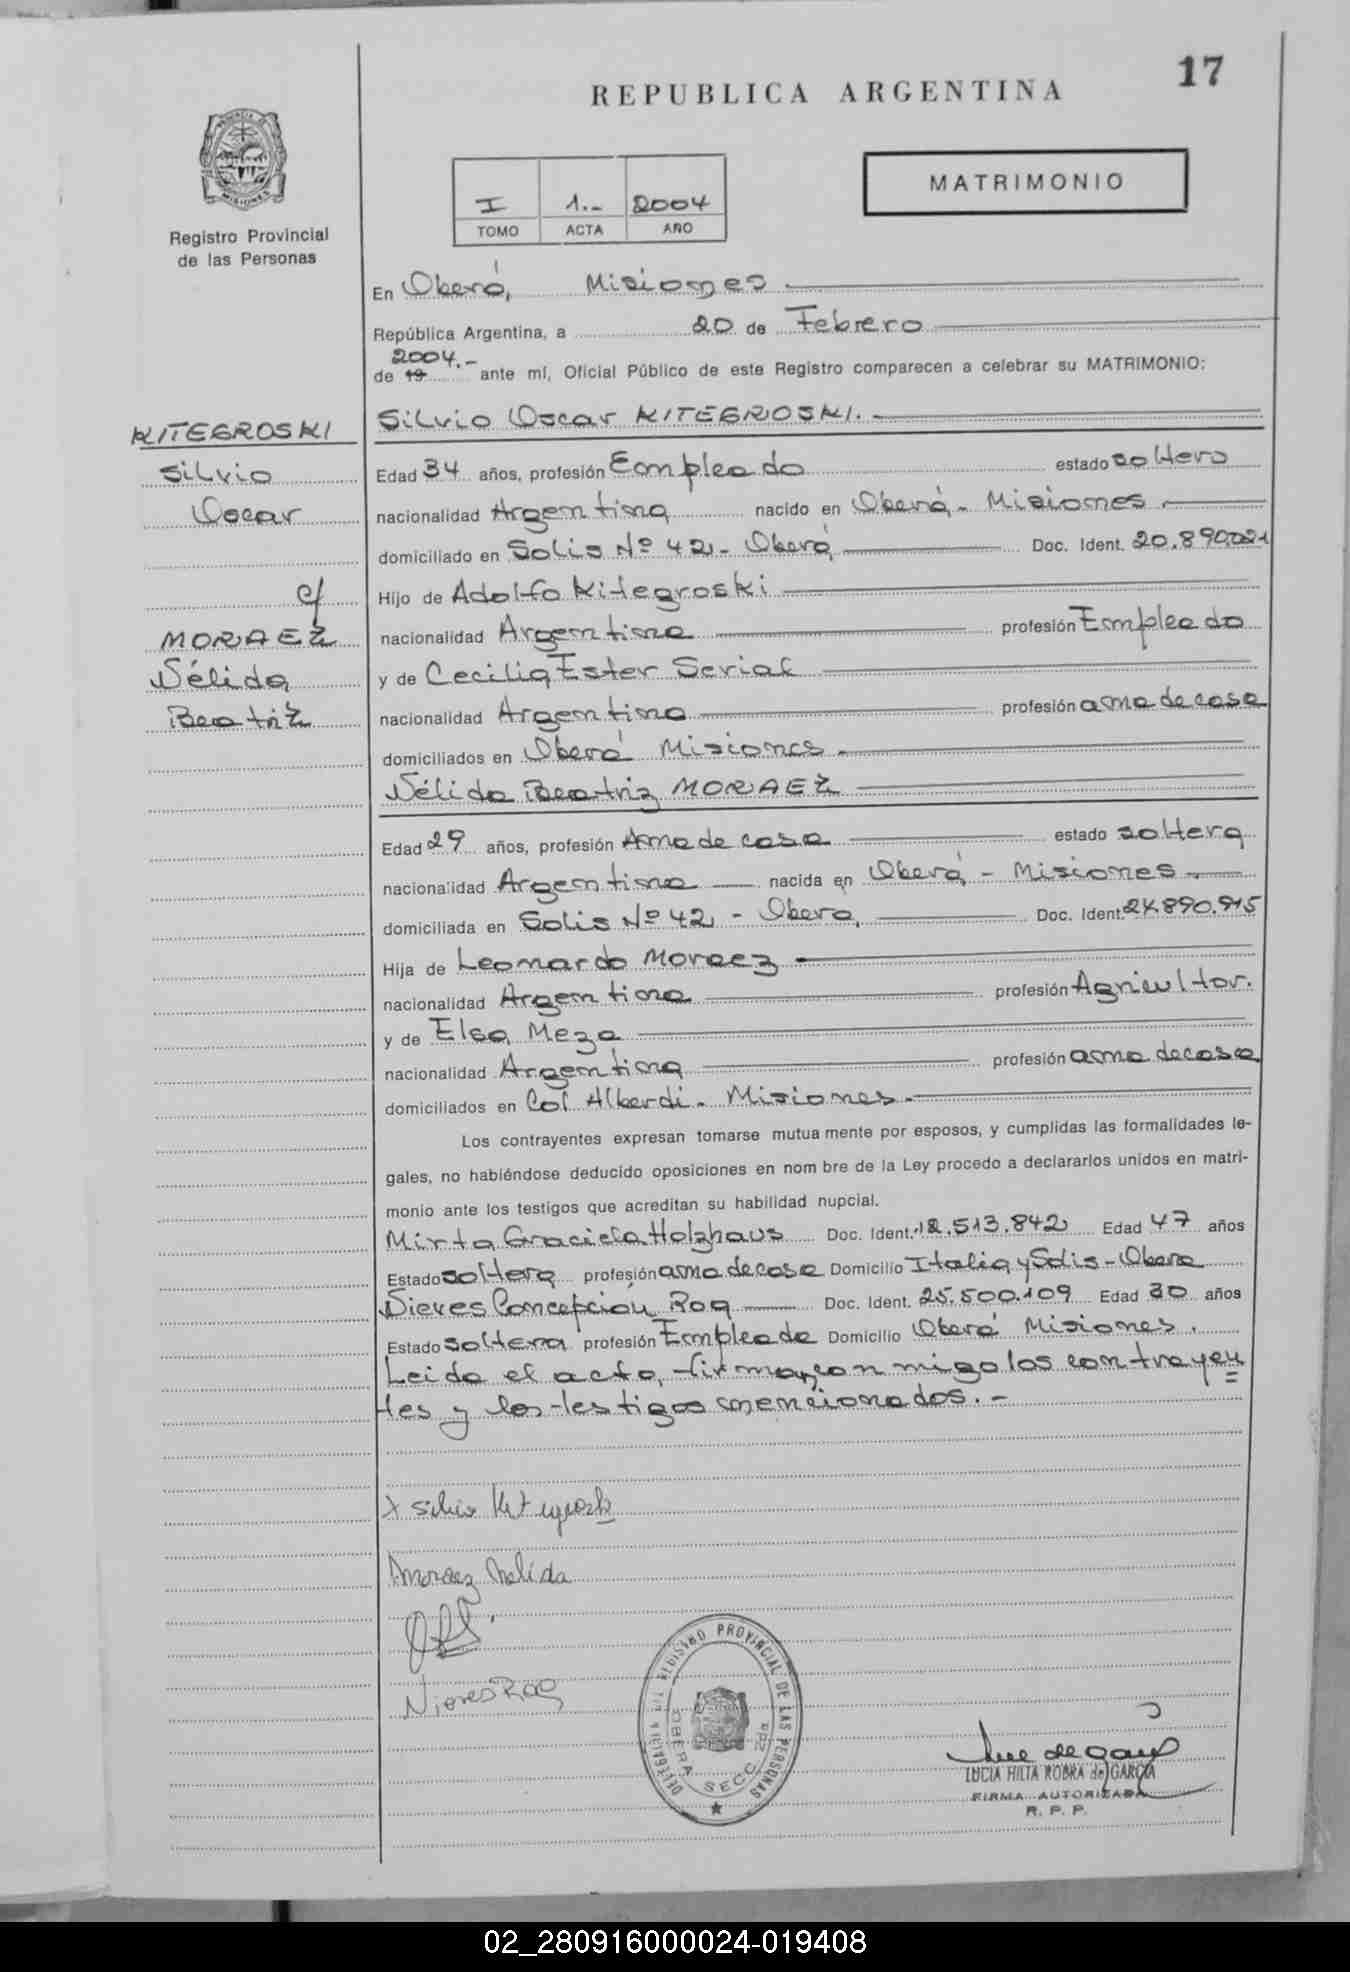 17
REPUBLICA ARGENTINA
MATRIMONIO
I 1.- 2004
TOMO ACTA AÑO
Registro Provincial
de las Personas
En Oberá, Misiones
República Argentina, a 20 de Febrero
2004.-
de 19 ante mí, Oficial Público de este Registro comparecen a celebrar su MATRIMONIO:
KITEGROSKI
Silvio
Oscar
c/
MORAEZ
Nélida
Beatriz
Silvio Oscar KITEGROSKI.-
Edad 34 años, profesión Empleado estado soltero
nacionalidad Argentina nacido en Oberá - Misiones
domiciliado en Solis Nº 42 - Oberá Doc. Ident. 20.890.021
Hijo de Adolfo Kitegroski
nacionalidad Argentina profesión Empleado
y de Cecilia Ester Serial
nacionalidad Argentina profesión ama de casa
domiciliados en Oberá Misiones.
Nélida Beatriz MORAEZ
Edad 29 años, profesión Ama de casa estado soltera
nacionalidad Argentina nacida en Oberá - Misiones
domiciliada en Solis Nº 42 - Oberá, Doc. Ident. 24.890.915
Hija de Leonardo Moraez
nacionalidad Argentina profesión Agricultor.
y de Elsa Meza
nacionalidad Argentina profesión ama de casa
domiciliados en Col Alberdi. Misiones.
Los contrayentes expresan tomarse mutua mente por esposos, y cumplidas las formalidades le-
gales, no habiéndose deducido oposiciones en nom bre de la Ley procedo a declararlos unidos en matri-
monio ante los testigos que acreditan su habilidad nupcial.
Mirta Graciela Holzhaus Doc. Ident. 12.513.842 Edad 47 años
Estado soltera profesión ama de casa Domicilio Italia y Solis - Oberá
Nieves Concepción Roa Doc. Ident. 25.500.109 Edad 30 años
Estado soltera profesión Empleada Domicilio Oberá Misiones.
Leida el acta, firman conmigo los contrayen
tes y los testigos mencionados.-
x Silvio Kitegroski
Moraez Nelida
Nieves Roa
DELEGACION DEL REGISTRO PROVINCIAL DE LAS PERSONAS
OBERA SECC. 2da
LUCIA HILTA ROBRA de GARCIA
FIRMA AUTORIZADA
R. P. P.
02_280916000024-019408